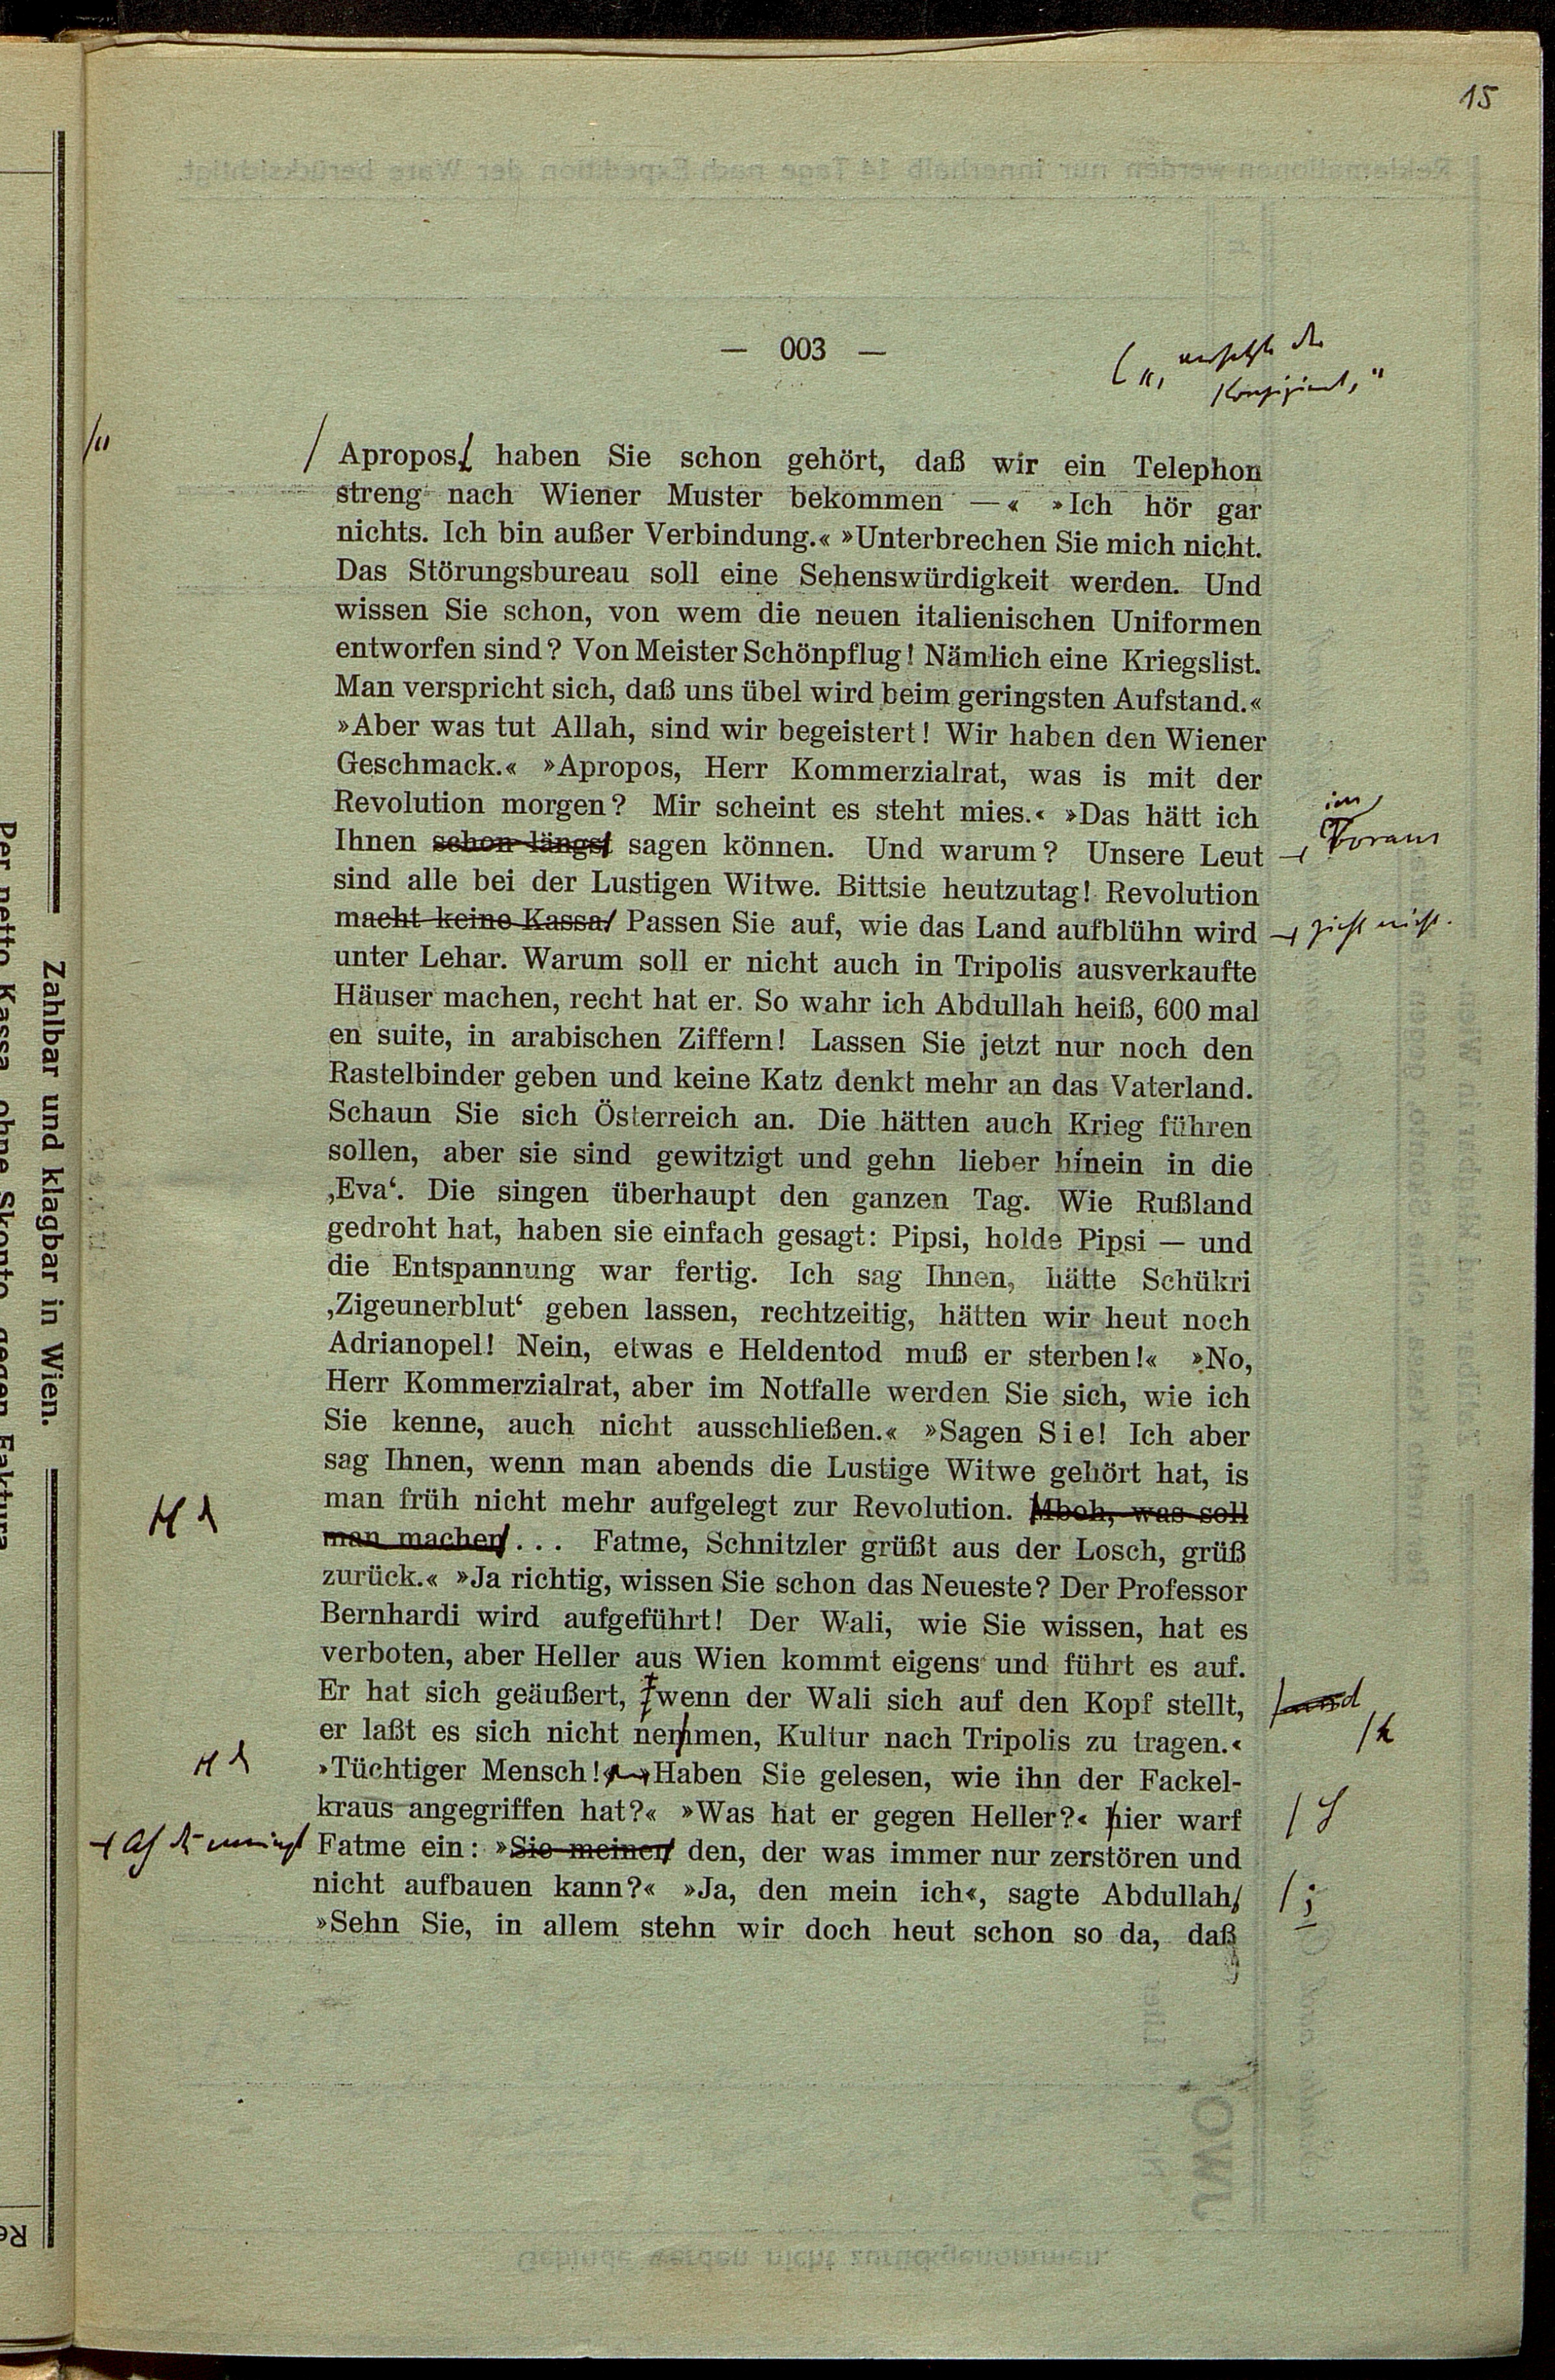 15
— 003 —
Apropos, haben Sie schon gehört, daß wir ein Telephon
streng nach Wiener Muster bekommen —« »Ich hör gar
nichts. Ich bin außer Verbindung.« »Unterbrechen Sie mich nicht.
Das Störungsbureau soll eine Sehenswürdigkeit werden. Und
wissen Sie schon, von wem die neuen italienischen Uniformen
entworfen sind? Von Meister Schönpflug! Nämlich eine Kriegslist.
Man verspricht sich, daß uns übel wird beim geringsten Aufstand.«
»Aber was tut Allah, sind wir begeistert! Wir haben den Wiener
Geschmack.« »Apropos, Herr Kommerzialrat, was is mit der
Revolution morgen? Mir scheint es steht mies.« »Das hätt ich
im
Voraus
Ihnen schon längst sagen können. Und warum? Unsere Leut
sind alle bei der Lustigen Witwe. Bittsie heutzutag! Revolution
macht keine Kassa. Passen Sie auf, wie das Land aufblühn wird
zieht nicht.
unter Lehar. Warum soll er nicht auch in Tripolis ausverkaufte
Häuser machen, recht hat er. So wahr ich Abdullah heiß, 600 mal
en suite, in arabischen Ziffern! Lassen Sie jetzt nur noch den
Rastelbinder geben und keine Katz denkt mehr an das Vaterland.
Schaun Sie sich Österreich an. Die hätten auch Krieg führen
sollen, aber sie sind gewitzigt und gehn lieber hinein in die
‚Eva‘. Die singen überhaupt den ganzen Tag. Wie Rußland
gedroht hat, haben sie einfach gesagt: Pipsi, holde Pipsi — und
die Entspannung war fertig. Ich sag Ihnen, hätte Schükri
‚Zigeunerblut‘ geben lassen, rechtzeitig, hätten wir heut noch
Adrianopel! Nein, etwas e Heldentod muß er sterben!« »No,
Herr Kommerzialrat, aber im Notfalle werden Sie sich, wie ich
Sie kenne, auch nicht ausschließen.« »Sagen Sie! Ich aber
sag Ihnen, wenn man abends die Lustige Witwe gehört hat, is
man früh nicht mehr aufgelegt zur Revolution. Mboh, was soll
man machen ... Fatme, Schnitzler grüßt aus der Losch, grüß
zurück.« »Ja richtig, wissen Sie schon das Neueste? Der Professor
Bernhardi wird aufgeführt! Der Wali, wie Sie wissen, hat es
verboten, aber Heller aus Wien kommt eigens und führt es auf.
Er hat sich geäußert, wenn der Wali sich auf den Kopf stellt,
er laßt es sich nicht nemmen, Kultur nach Tripolis zu tragen.«
h
»Tüchtiger Mensch!« »Haben Sie gelesen, wie ihn der Fackel-
kraus angegriffen hat?« »Was hat er gegen Heller?« hier warf
Fatme ein: »Sie meinen den, der was immer nur zerstören und
nicht aufbauen kann?« »Ja, den mein ich«, sagte Abdullah,
;
»Sehn Sie, in allem stehn wir doch heut schon so da, daß
Zahlbar und klagbar in Wien.
Per netto Kassa ohne Skonto gegen Faktura
Reklamationen werden nur innerhalb 14 Tage nach Expedition der Ware berücksichtigt.
Gebinde werden nicht zurückgenommen.